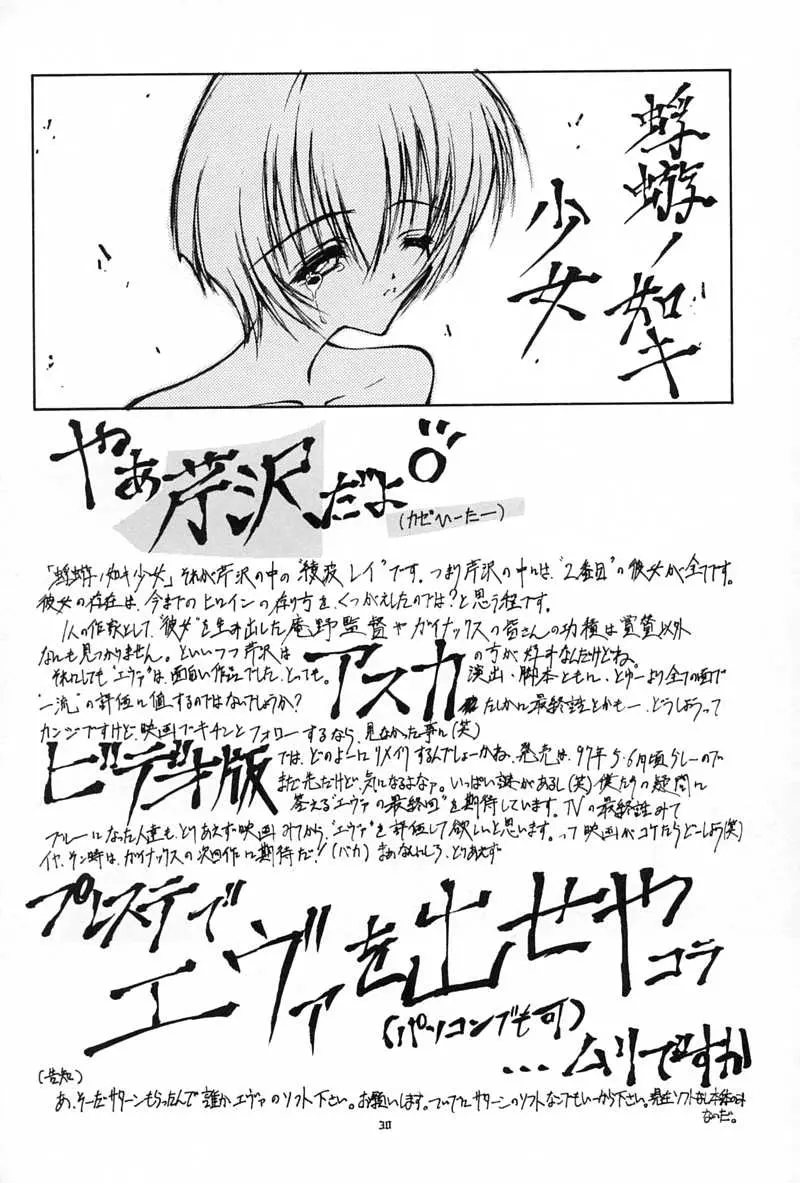 蜉蝣ノ如キ
少女
やあ芹沢だよ
(カゼひーたー)
「蜉蝣ノ如キ少女」それが芹沢の中の"綾波レイ"です。つまり芹沢の中には、"2番目"の彼女が全てです。
彼女の存在は、今までのヒロインの在り方を、くつがえしたのでは?と思う程です。
1人の作家として、"彼女"を生み出した庵野監督やガイナックスの皆さんの功績は賞賛以外
なんも見つかりません。といいつつ芹沢はアスカの方が好きなんだけどね。
それにしても"エヴァ"は、面白い作品でした、とっても。演出・脚本ともに、とゆーより全ての面で
"一流"の評価に値するのではないでしょうか?たしかに最終話とかも…、どうしようって
カンジですけど、映画でキチンとフォローするなら、見なかった事に(笑)
ビデオ版では、どのよーにリメイクするんでしょーかね、発売は、97年5、6月頃らしーので
まだ先だけど、気になるよなァ。いっぱい謎があるし(笑)僕たちの疑問に
答える"エヴァの最終回"を期待しています。TVの最終話みて
ブルーになった人達も、とりあえず映画みてから、"エヴァ"を評価して欲しいと思います。って映画がコケたらどーしよう(笑)
イヤ、そん時は、ガイナックスの次回作に期待だ!(バカ)まぁなんにしろ、とりあえず
プレステで
エヴァを出せや
コラ
(パソコンでも可)
...ムリですか
(告知)
あ、そーだ、サターンもらったんで誰かエヴァのソフト下さい。お願いします。ついでにサターンのソフトなんでもいーから下さい。現在ソフトなし、本体のみ
なのだ。
30